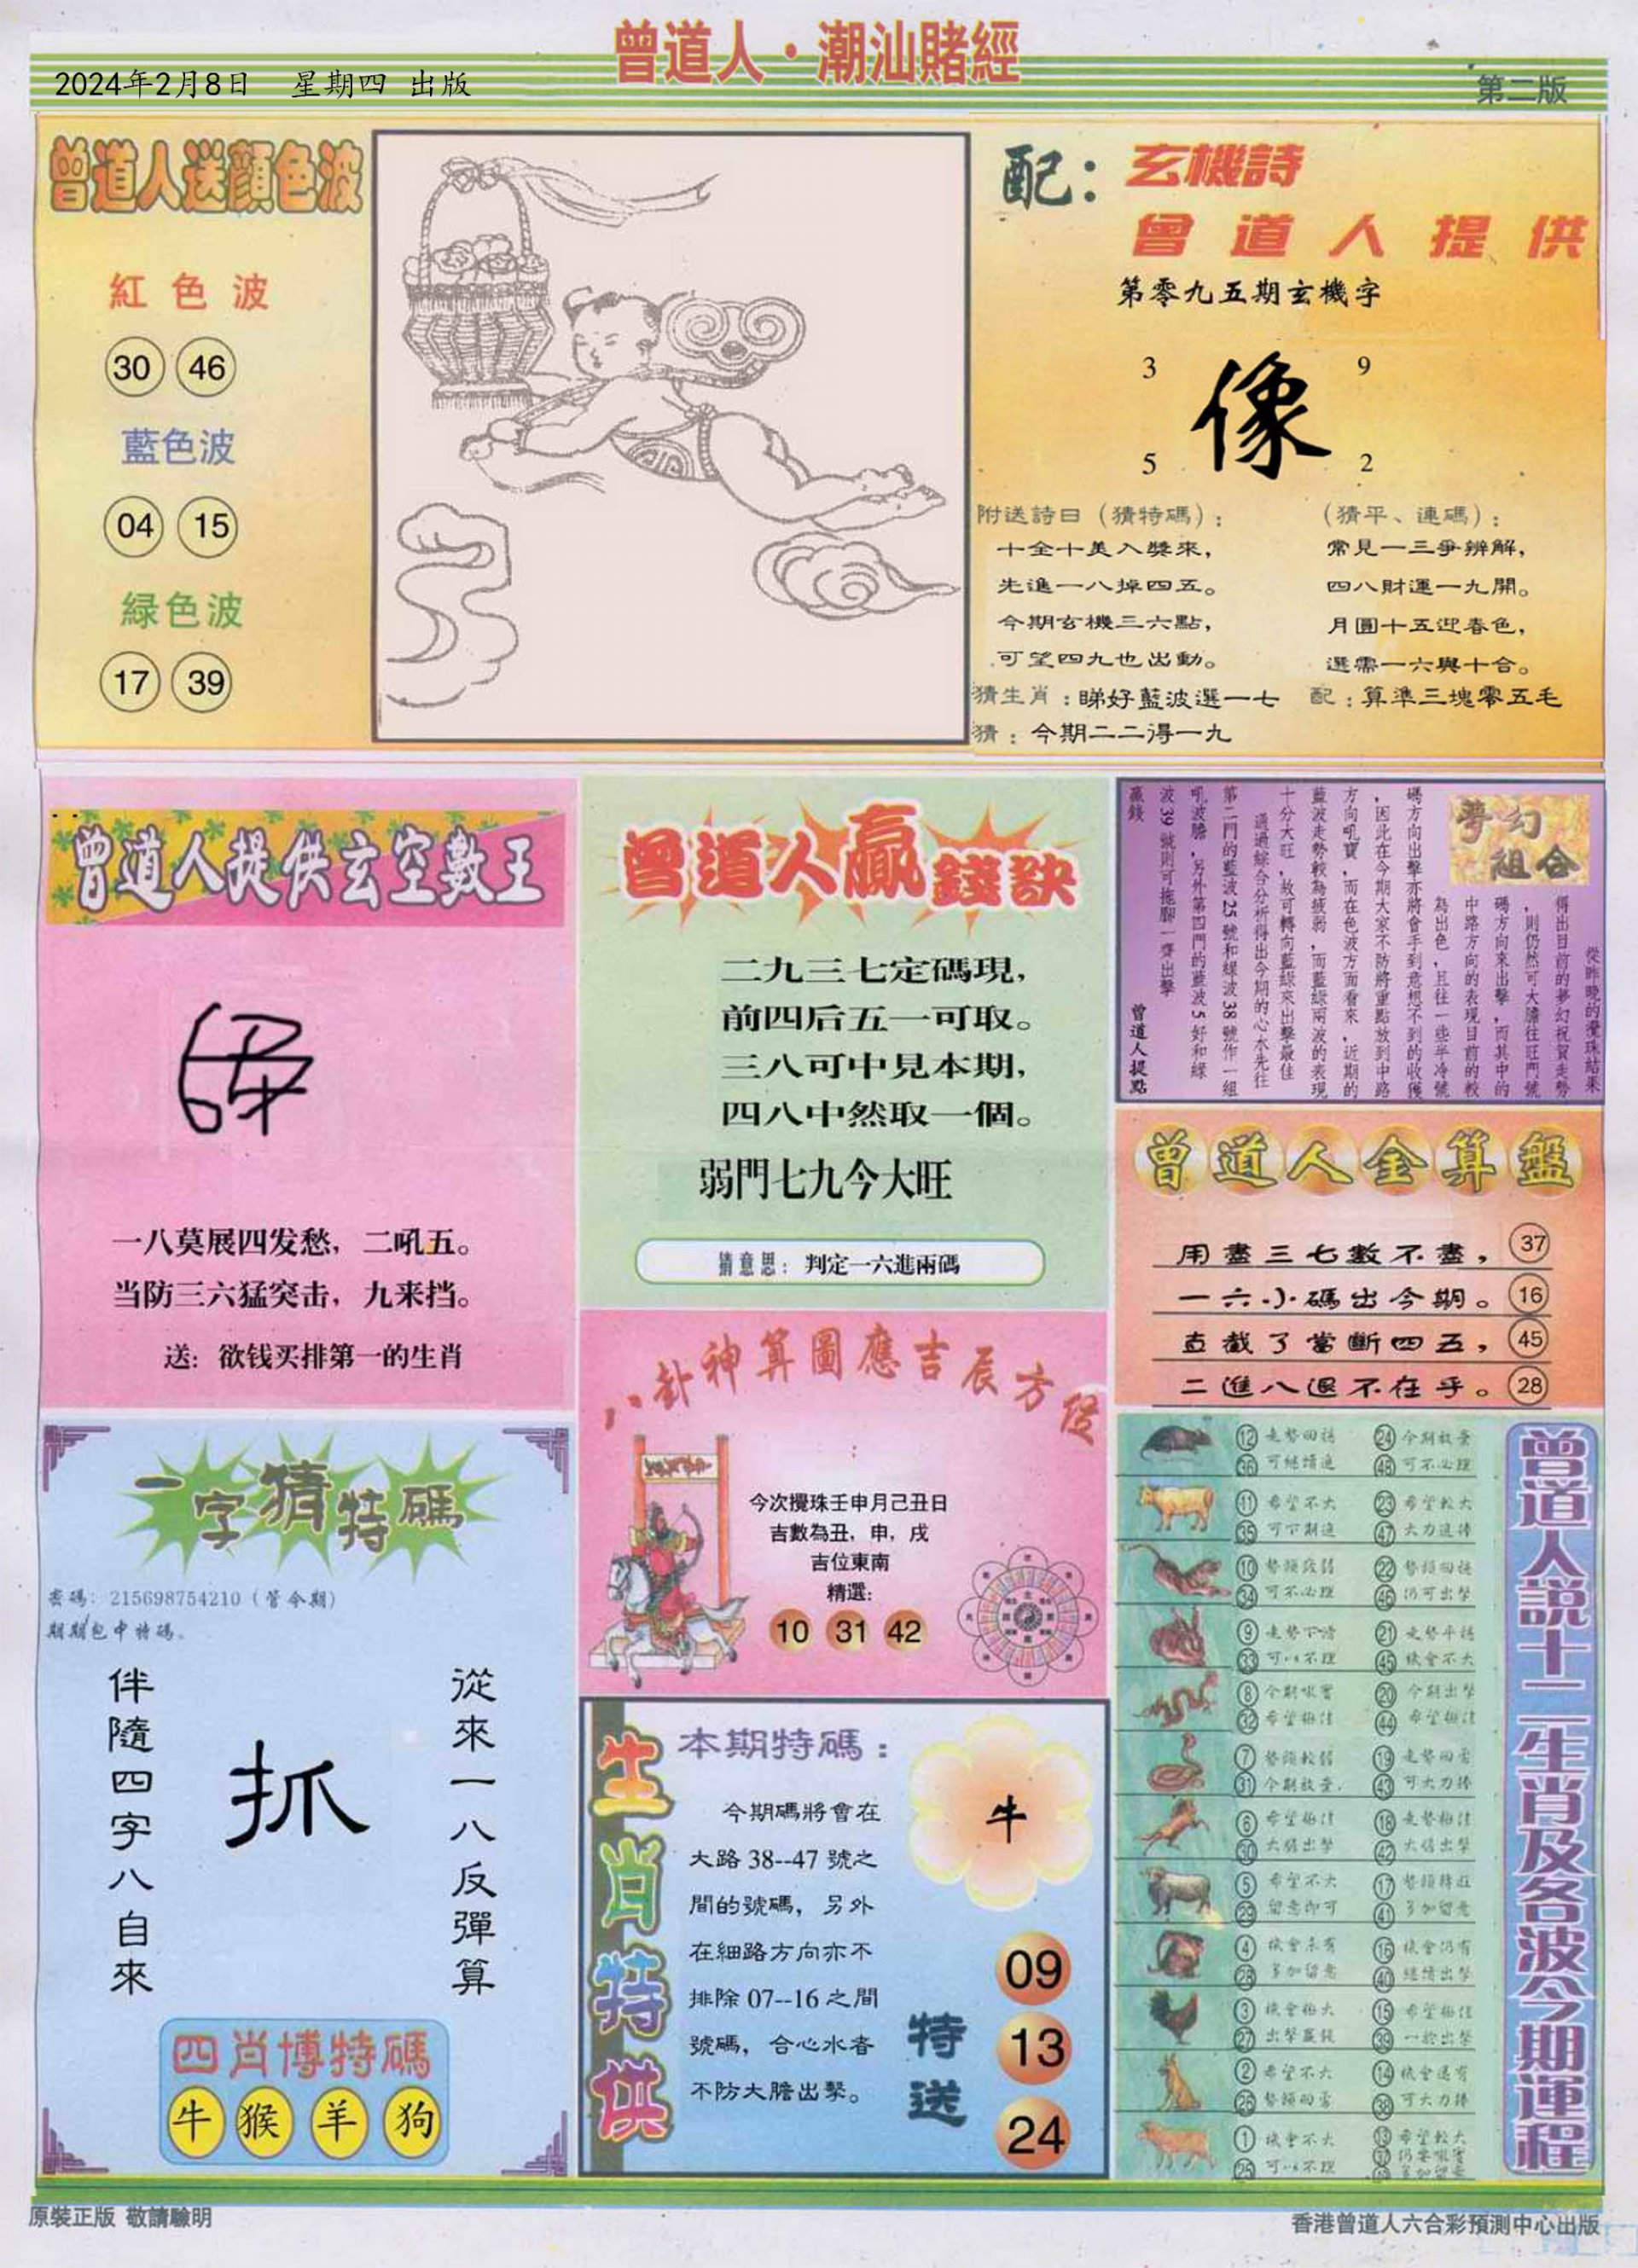 曾道人·潮汕賭經
2024年2月8日 星期四 出版
第二版
曾道人送顔色波
紅色波
30 46
藍色波
04 15
緑色波
17 39
配：玄機詩
曾道人提供
第零九五期玄機字
3 9
像
5 2
附送詩曰（猜特碼）：
十全十美入獎來，
先進一八掉四五。
今期玄機三六點，
可望四九也出動。
（猜平、連碼）：
常見一三爭辨解，
四八財運一九開。
月圓十五迎春色，
選需一六與十合。
猜生肖：睇好藍波選一七 配：算準三塊零五毛
猜：今期二二得一九
曾道人提供玄空數王
一八莫展四发愁，二吼五。
当防三六猛突击，九来挡。
送：欲钱买排第一的生肖
曾道人贏錢訣
二九三七定碼現，
前四后五一可取。
三八可中見本期，
四八中然取一個。
弱門七九今大旺
猜意思：判定一六進兩碼
夢幻
組合
從昨晚的攪珠結果
得出目前的夢幻祝賀走勢
，則仍然可大膽往旺門號
碼方向來出擊，而其中的
中路方向的表現目前的較
為出色，且往一些半冷號
碼方向出擊亦將會手到意想不到的收獲
，因此在今期大家不防將重點放到中路
方向吼寶，而在色波方面看來，近期的
藍波走勢較為疲弱，而藍綠兩波的表現
十分大旺，故可轉向藍綠來出擊最佳
通過綜合分析得出今期的心水先往
第二門的藍波25號和綠波38號作一組
吼波膽，另外第四門的藍波5好和綠
波39號則可拖腳一齊出擊
贏錢
曾道人提點
曾道人金算盤
用盡三七數不盡，37
一六小碼出今期。16
直截了當斷四五，45
二進八退不在乎。28
八卦神算圖應吉辰方位
今次攪珠壬申月己丑日
吉數為丑，申，戌
吉位東南
精選：
10 31 42
一字猜特碼
密碼：215698754210（管令期）
期期包中特碼。
從來一八反彈算
抓
伴隨四字八自來
四肖博特碼
牛 猴 羊 狗
生肖特供
本期特碼：
今期碼將會在
大路38--47號之
間的號碼，另外
在細路方向亦不
排除07--16之間
號碼，合心水者
不防大膽出擊。
牛
特送
09
13
24
曾道人説十二生肖及各波今期運程
12 走勢回穩 24 今期放棄
36 可繼續追 48 可不必理
11 希望不大 23 希望較大
35 可下期追 47 大力追捧
10 勢頭較弱 22 勢頭回穩
34 可不必理 46 仍可出擊
9 走勢下滑 21 走勢平穩
33 可以不理 45 機會不大
8 今期吼實 20 今期出擊
32 希望極佳 44 希望極佳
7 勢頭較弱 19 走勢回雷
31 今期放棄 43 可大力捧
6 希望極佳 18 走勢極佳
30 大膽出擊 42 大膽出擊
5 希望不大 17 勢頭轉旺
29 留意即可 41 多加留意
4 機會未有 16 機會仍有
28 多加留意 40 繼續出擊
3 機會極大 15 希望極佳
27 出擊贏錢 39 一於出擊
2 希望不大 14 機會還有
26 勢頭回雷 38 可大力捧
1 機會不大 13 希望較大
25 可以不理 37 仍要吼實
原裝正版 敬請驗明
香港曾道人六合彩預測中心出版